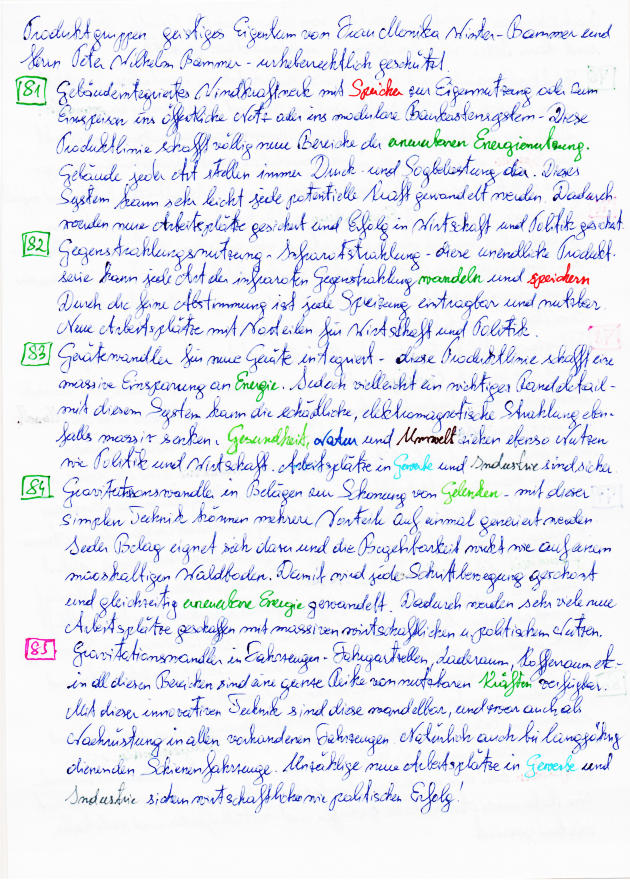 Produktgruppen geistiges Eigentum von Frau Monika Winter-Bammer und
Herrn Peter Wilhelm Bammer - urheberrechtlich geschützt
81 Gebäudeintegriertes Windkraftwerk mit Speicher zur Eigennutzung oder zum
Einspeisen ins öffentliche Netz oder ins modulare Baukastensystem - Diese
Produktlinie schafft völlig neue Bereiche der erneuerbaren Energienutzung.
Gebäude jeder Art stellen immer Druck- und Sogbelastung dar. Dieses
System kann sehr leicht jede potentielle Kraft gewandelt werden. Dadurch
werden neue Arbeitsplätze gesichert und Erfolg in Wirtschaft und Politik gesichert.
82 Gegenstrahlungsnutzung - Infrarotstrahlung - diese unendliche Produkt-
serie kann jede Art der infraroten Gegenstrahlung wandeln und speichern
Durch die feine Abstimmung ist jede Speisung eintragbar und nutzbar.
Neue Arbeitsplätze mit Vorteilen für Wirtschaft und Politik.
83 Gerätewandler für neue Geräte integriert - diese Produktlinie schafft eine
massive Einsparung an Energie. Jedoch vielleicht ein wichtiges Randdetail -
mit diesem System kann die schädliche, elektromagnetische Strahlung eben-
falls massiv senken. Gesundheit, Natur und Umwelt ziehen ebenso Nutzen
wie Politik und Wirtschaft. Arbeitsplätze in Gewerbe und Industrie sind sicher.
84 Gravitationswandler in Belägen zur Schonung von Gelenken - mit dieser
simplen Technik können mehrere Vorteile auf einmal generiert werden
Jeder Belag eignet sich dazu und die Begehbarkeit wirkt wie auf einem
mooshaltigen Waldboden. Damit wird jede Schrittbewegung geschont
und gleichzeitig erneuerbare Energie gewandelt. Dadurch werden sehr viele neue
Arbeitsplätze geschaffen mit massiven wirtschaftlichen u. politischen Nutzen.
85 Gravitationswandler in Fahrzeugen - Fahrgastzellen, Laderaum, Kofferraum etc -
in all diesen Bereichen sind eine ganze Reihe von nutzbaren Kräften verfügbar.
Mit dieser innovativen Technik sind diese wandelbar, und zwar auch als
Nachrüstung in allen vorhandenen Fahrzeugen. Natürlich auch bei langjährig
dienenden Schienenfahrzeuge. Unzählige neue Arbeitsplätze in Gewerbe und
Industrie sichern wirtschaftlichen wie politischen Erfolg!